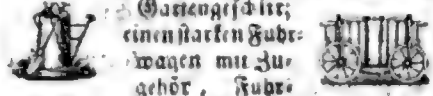 Gartengeschirr;
einen starken Fuhr⸗
wagen mit Zu⸗
gehör, Fuhr⸗